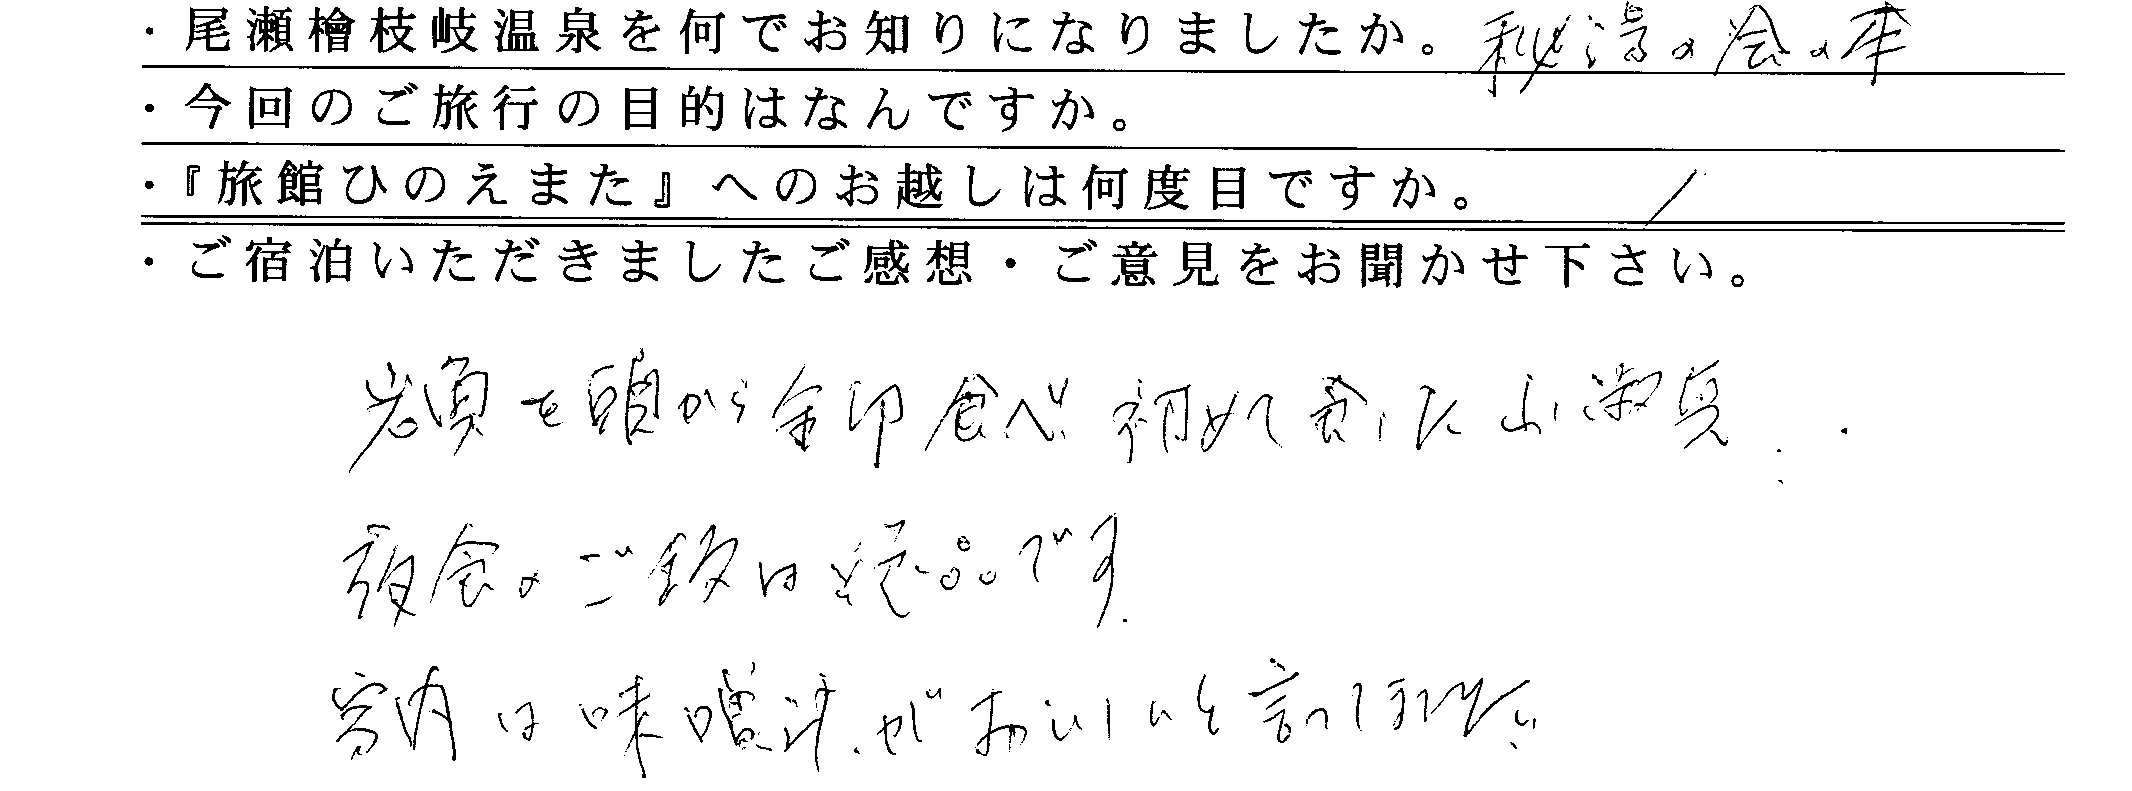 ・尾瀬檜枝岐温泉を何でお知りになりましたか。秘湯の会の本
・今回のご旅行の目的はなんですか。
・『旅館ひのえまた』へのお越しは何度目ですか。 1
・ご宿泊いただきましたご感想・ご意見をお聞かせ下さい。
岩魚を頭から全部食べ 初めて食した山淑魚..
夜食のご飯は絶品です.
家内は味噌汁がおいしいと言ってました。